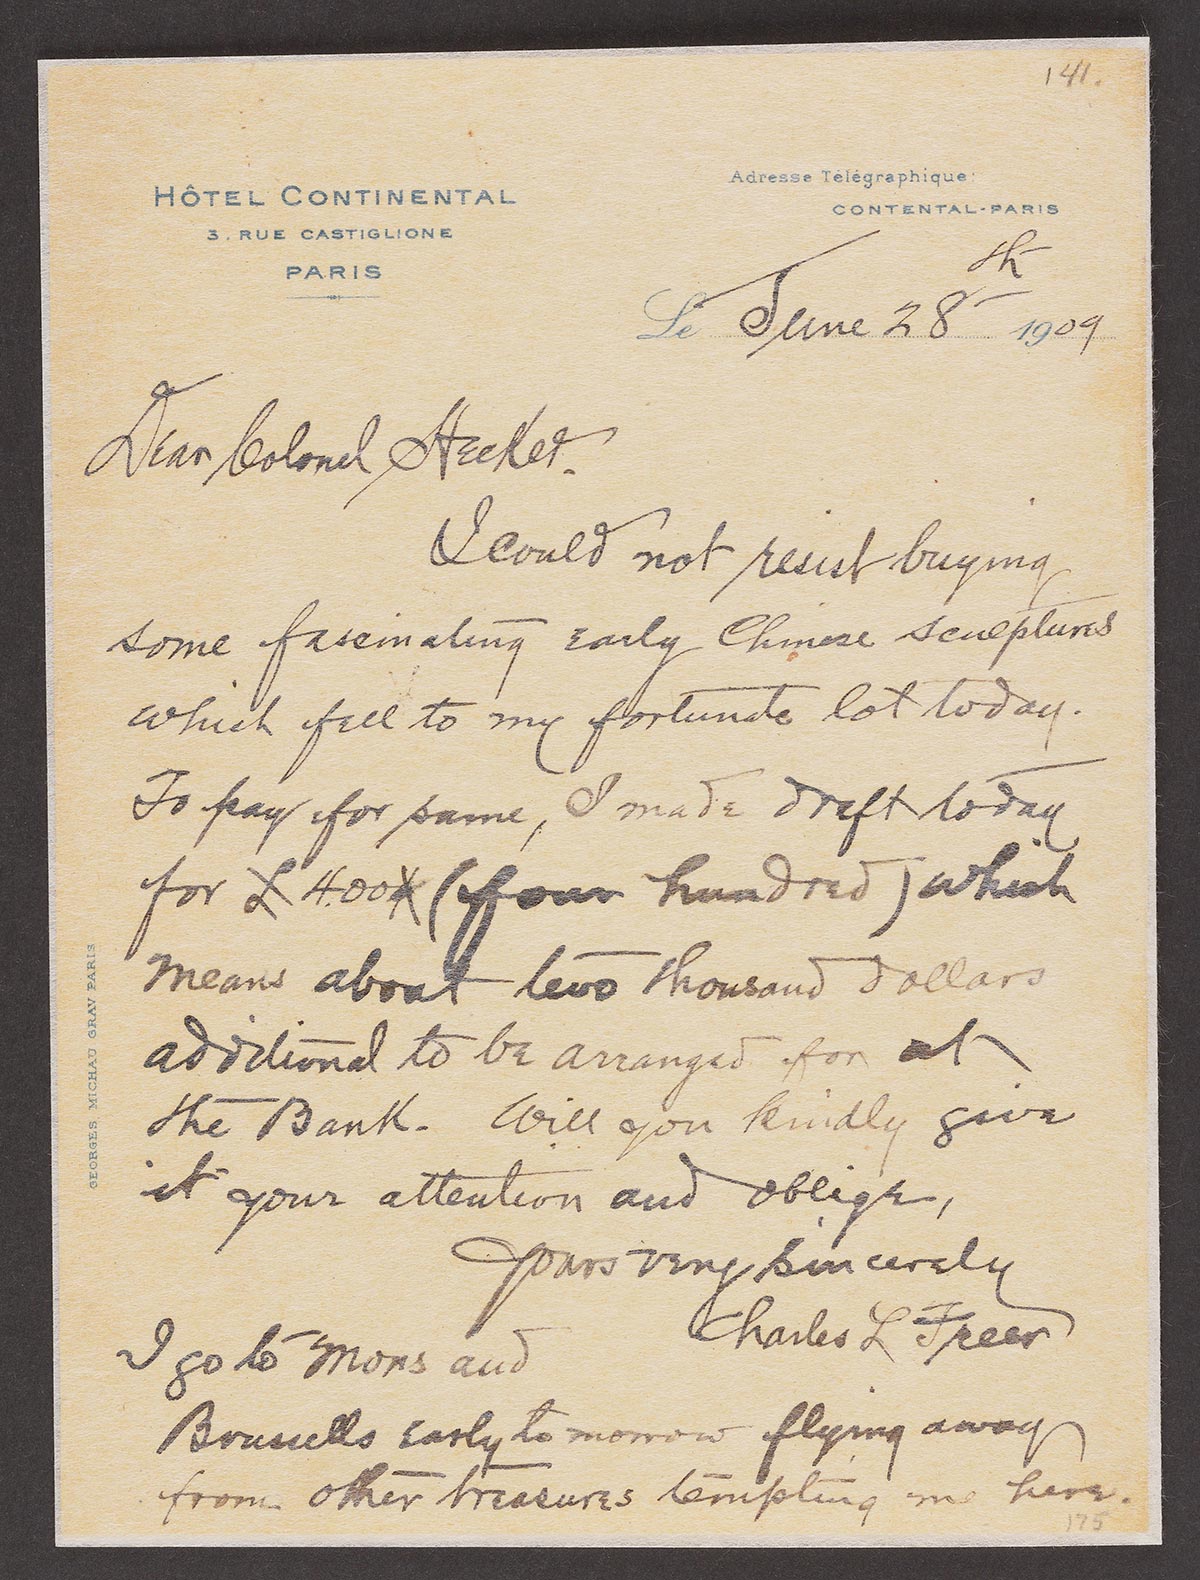 141.
HÔTEL CONTINENTAL
3. RUE CASTIGLIONE
PARIS
Adresse Télégraphique:
CONTENTAL-PARIS
Le June 28th 1909
Dear Colonel Hecker.
I could not resist buying
some fascinating early Chinese sculptures
which fell to my fortunate lot today.
To pay for same, I made draft today
for £400 (four hundred) which
means about two thousand dollars
additional to be arranged for at
the Bank. Will you kindly give
it your attention and oblige,
Yours very sincerely
Charles L Freer
I go to Mons and
Brussells early tomorrow flying away
from other treasures tempting me here.
175
GEORGES MICHAU GRAV PARIS